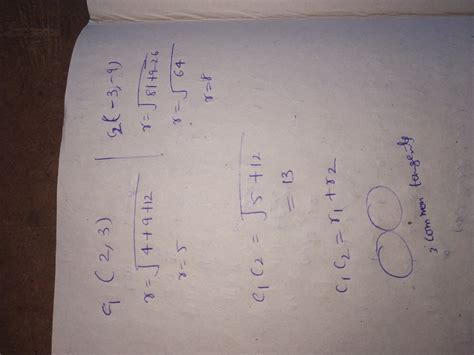 C₁ (2, 3)
r = √4+9+12
r = 5
C₂ (-3, -9)
r = √81+9-26
r = √64
r = 8
C₁ C₂ = √5+12
= 13
C₁ C₂ = r₁ + r₂
3 common tangents